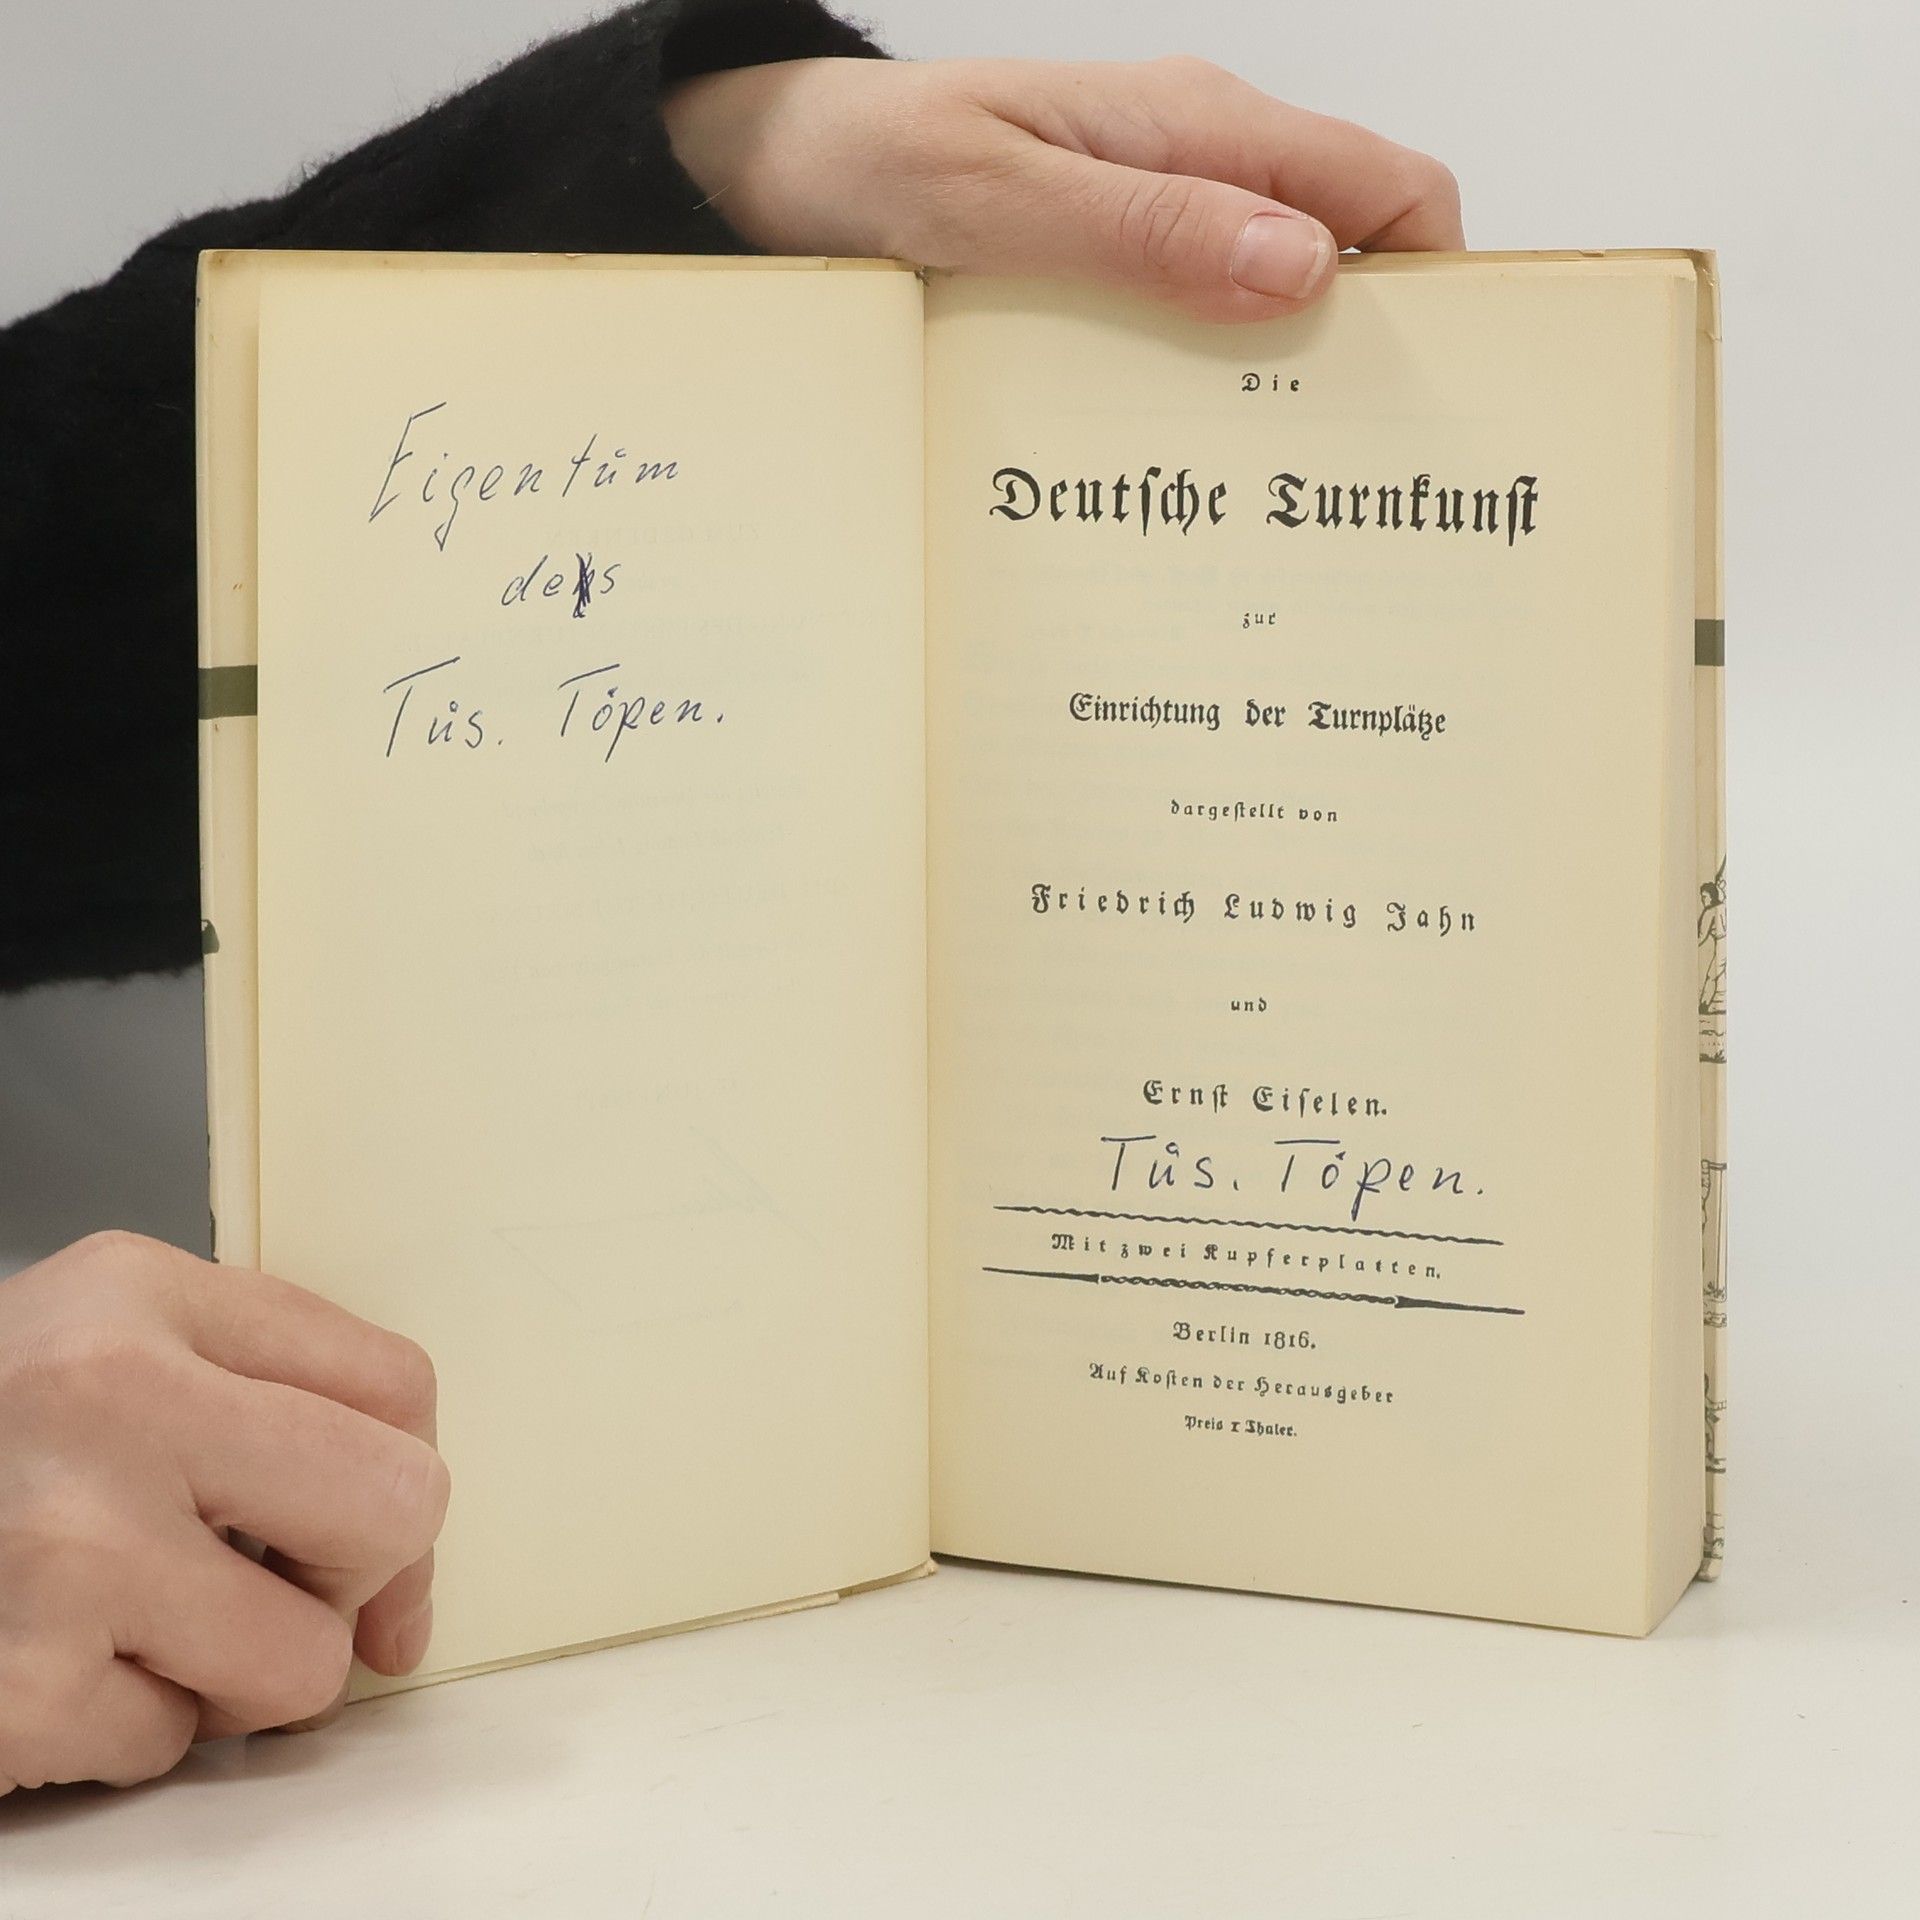 Eigentum
des
Tus. Töpen.
Die
Deutsche Turnkunst
zur
Einrichtung der Turnplätze
dargestellt von
Friedrich Ludwig Jahn
und
Ernst Eiselen.
Tus. Töpen.
Mit zwei Kupferplatten.
Berlin 1816.
Auf Kosten der Herausgeber
Preis 1 Thaler.